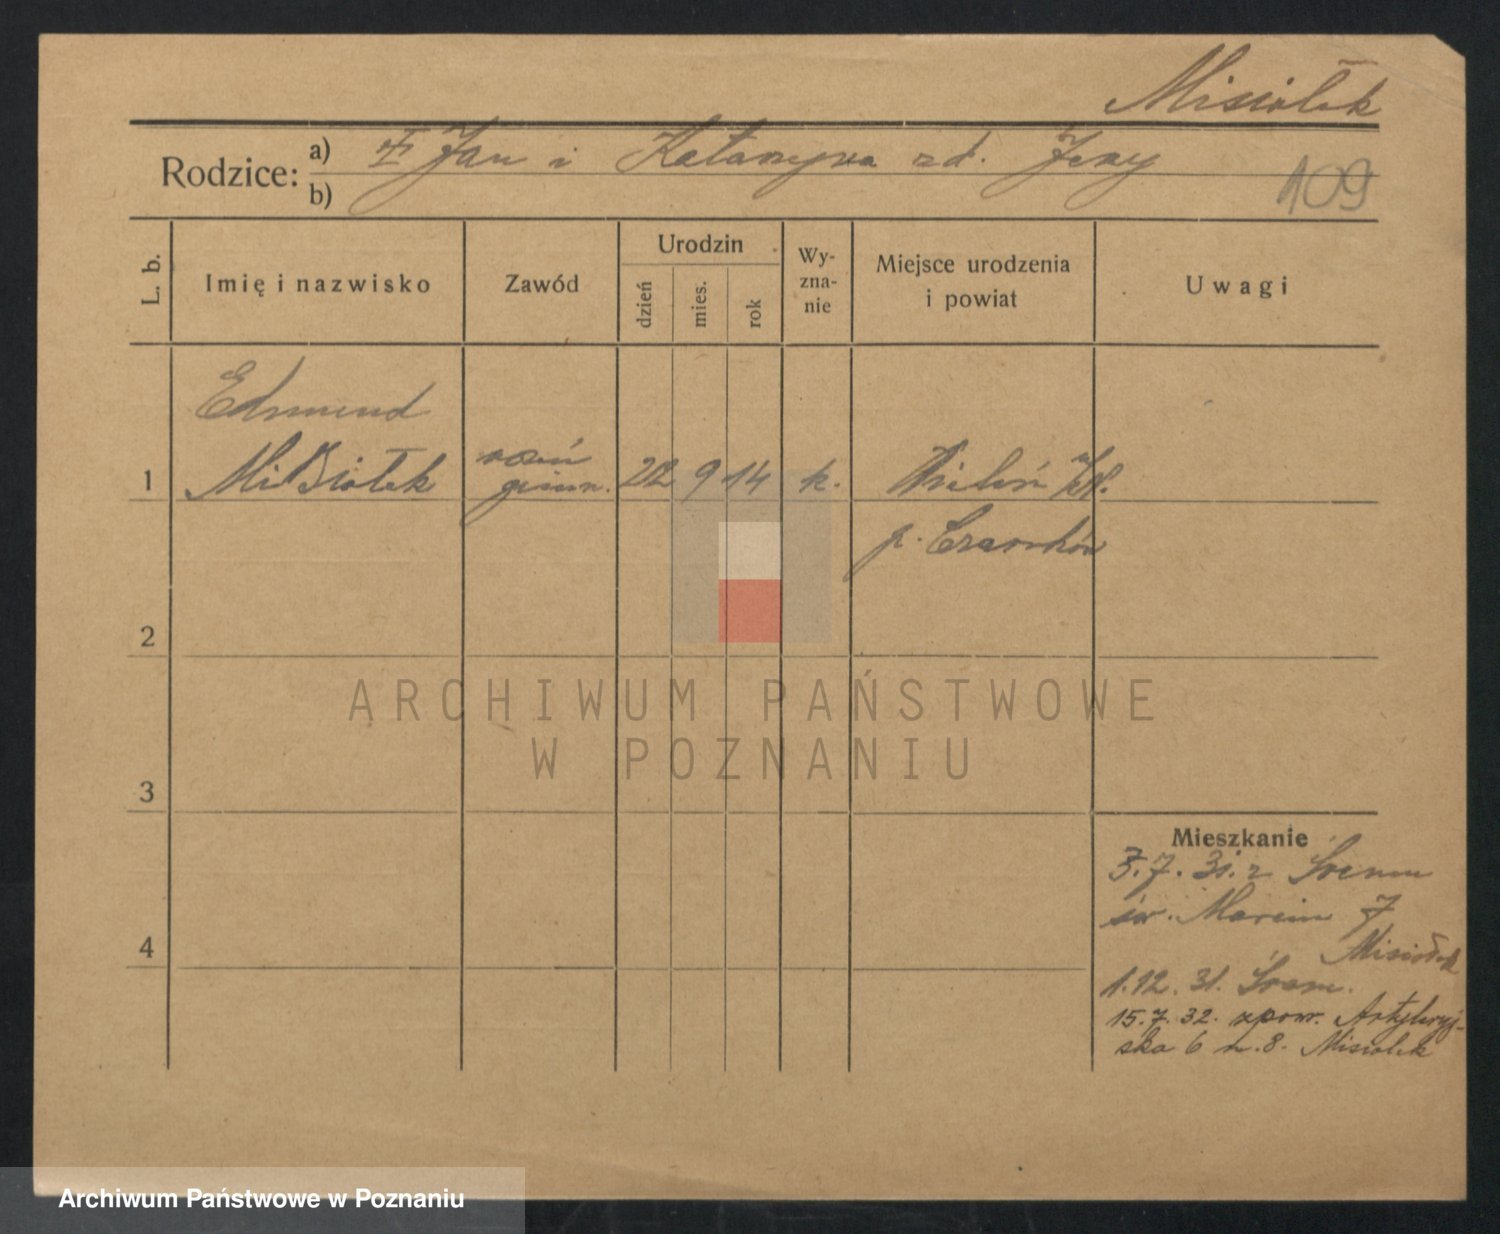 Misiołek
Rodzice: a) Jan i Katarzyna zd. Jerzy
b)
109
L. b.
Imię i nazwisko
Zawód
Urodzin
dzień
mies.
rok
Wy-
zna-
nie
Miejsce urodzenia
i powiat
Uwagi
Edmund
1 Misiołek
uczeń
gimn.
22 9 14 k. Wieleń
p. Czarnków
2
ARCHIWUM PAŃSTWOWE
W POZNANIU
3
Mieszkanie
3.7.31. z Śremu
św. Marcin 7
Misiołek
4
1.12.31. Śrem.
15.7.32. zpowr. Artyleryj-
ska 6 m.8. Misiołek
Archiwum Państwowe w Poznaniu